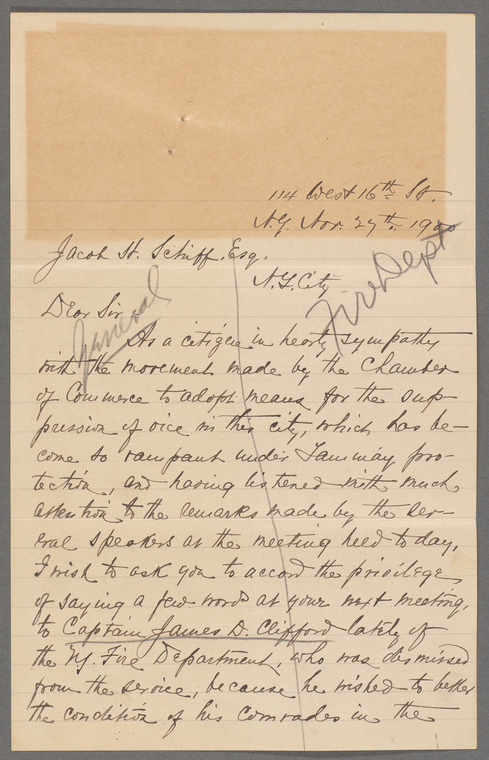 114 West 16th St.
N.Y. Nov. 27th 1900
Jacob H. Schiff. Esq.
N.Y. City
Fire Dept
Dear Sir
General
As a citizen in hearty sympathy
with the movement made by the Chamber
of Commerce to adopt means for the sup-
pression of vice in this city, which has be-
come so rampant under Tammay pro-
tection, and having listened with much
attention to the remarks made by the sev-
eral speakers at the meeting held to day,
I wish to ask you to accord the privilege
of saying a few words at your next meeting,
to Captain James D. Clifford lately of
the N.Y. Fire Department, who was dismissed
from the service, because he wished to better
the condition of his comrades in the